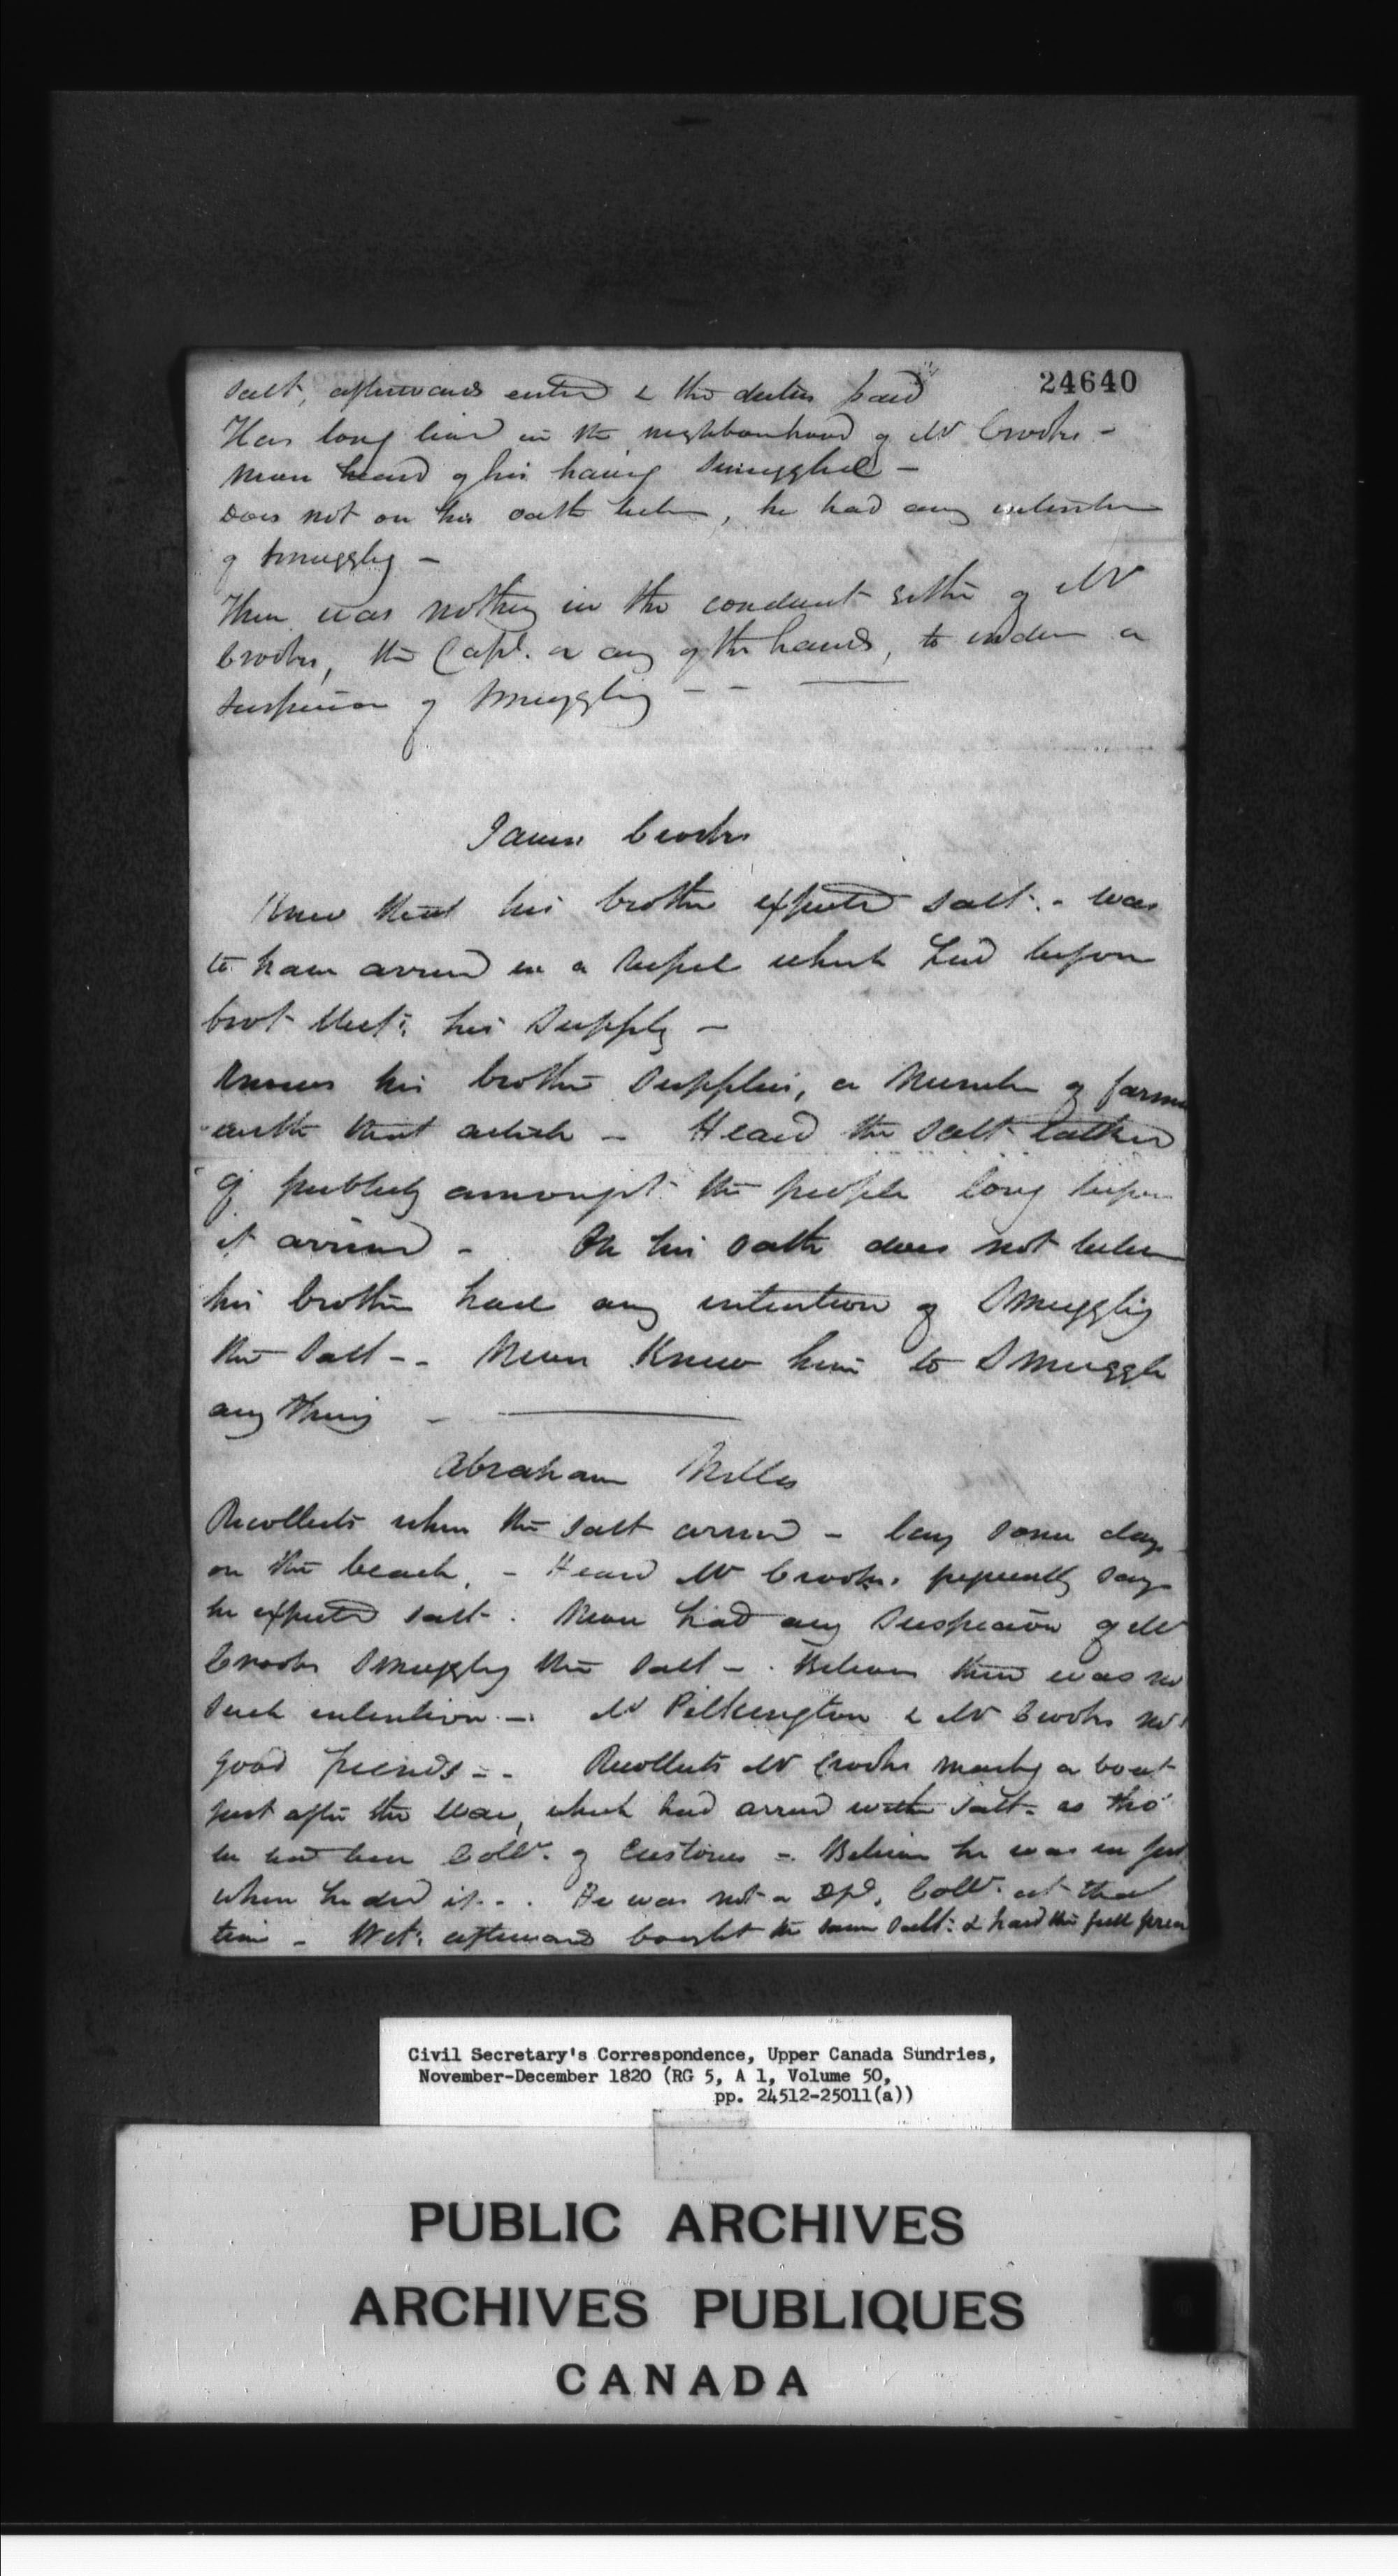 24640
salt, afterwards entered & the duties paid
Has long lived in the neighbourhood of Mr Crooks -
never heard of his having smuggled -
Does not on his oath believe, he had any intention
of smuggling -
There was nothing in the conduct either of Mr
Crooks, the Capt. or any of the hands, to a
suspicion of smuggling - -
James Crooks
Knew that his brother expected salt. - was
to have arrived in a vessel which had before
brot his supply -
Knows his brother supplies, a number of farmers
with that article - Heard the salt talked
of publicly amongst the people long before
it arrived - On his oath does not believe
his brother had any intention of smuggling
the salt - - Never knew him to smuggle
any thing -
Abraham Nelles
Recollects when the salt arrived - lay some days
on the beach, - Heard Mr Crooks, frequently say
he expected salt. Never had any suspicion of Mr
Crooks smuggling the salt -. Believes there was no
such intention -. Mr Pilkington & Mr Crooks not
good friends - - Recollects Mr Crooks marking a boat
just after the War, which had arrived with salt - as tho'
he had been Collr. of Customs -. Believes he was in jest
when he did it - . He was not a Dy. Collr. at that
time - Wit. afterwards bought the same salt: & paid the full price
Civil Secretary's Correspondence, Upper Canada Sundries,
November-December 1820 (RG 5, A 1, Volume 50,
pp. 24512-25011(a))
PUBLIC ARCHIVES
ARCHIVES PUBLIQUES
CANADA